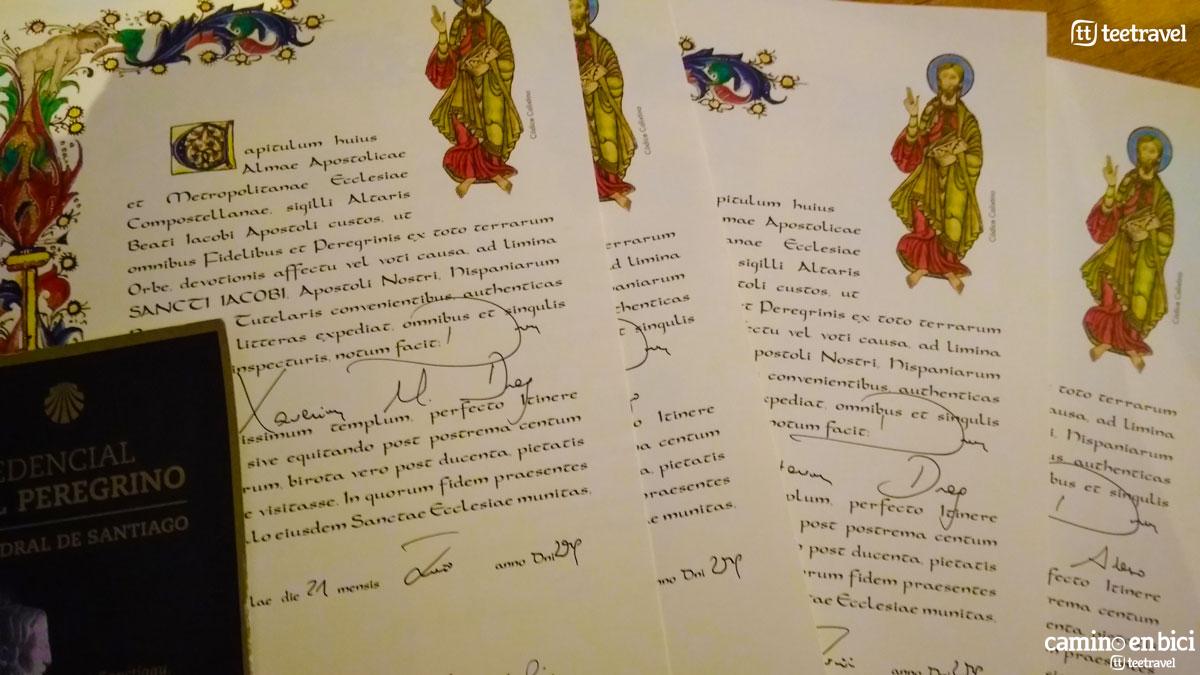 tt teetravel
Capitulum huius
Almae Apostolicae
et Metropolitanae Ecclesiae
Compostellanae, sigilli Altaris
Beati Iacobi Apostoli custos, ut
omnibus Fidelibus et Peregrinis ex toto terrarum
Orbe, devotionis affectu vel voti causa, ad limina
SANCTI IACOBI, Apostoli Nostri, Hispaniarum
Tutelaris convenientibus, authenticas
litteras expediat, omnibus et singulis
inspecturis, notum facit:
issimum templum, perfecto Itinere
sive equitando post postrema centum
rum, birota vero post ducenta, pietatis
e visitasse. In quorum fidem praesentes
lo eiusdem Sanctae Ecclesiae munitas,
lae die 21 mensis anno Dni
Códice Calixtino
EDENCIAL
L PEREGRINO
DRAL DE SANTIAGO
Códice Calixtino
terrarum
d limina
paniarum
nticas
singulis
Itinere
a centum
a, pietatis
raesentes
e munitas,
no Dni
Códice Calixtino
pitulum huius
mae Apostolicae
anae Ecclesiae
sigilli Altaris
toli custos, ut
et Peregrinis ex toto terrarum
ctu vel voti causa, ad limina
postoli Nostri, Hispaniarum
convenientibus, authenticas
xpediat, omnibus et singulis
notum facit:
plum, perfecto Itinere
post postrema centum
post ducenta, pietatis
rum fidem praesentes
tae Ecclesiae munitas,
anno Dni
Códice Calixtino
toto terrarum
ausa, ad limina
i, Hispaniarum
is, authenticas
bus et singulis
fecto Itinere
rema centum
enta
praese
camino en bici
tt teetravel